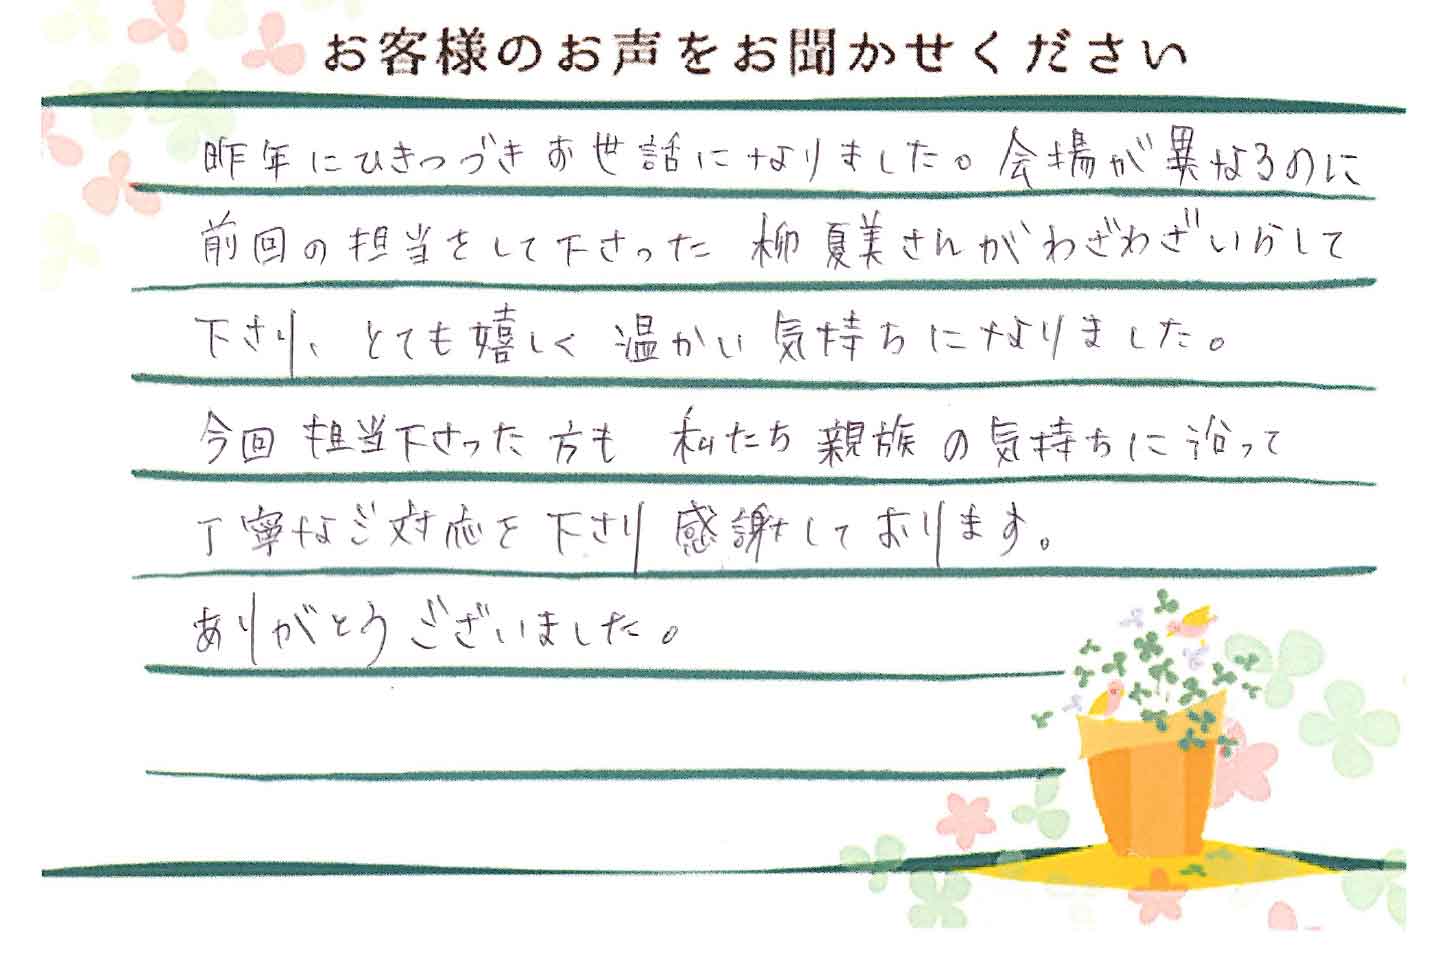 お客様のお声をお聞かせください
昨年にひきつづきお世話になりました。会場が異なるのに
前回の担当をして下さった 柳 夏美さんがわざわざいらして
下さり、とても嬉しく 温かい 気持ちになりました。
今回 担当下さった 方も 私たち 親族 の 気持ちに 沿って
丁寧なご対応を 下さり 感謝しております。
ありがとうございました。